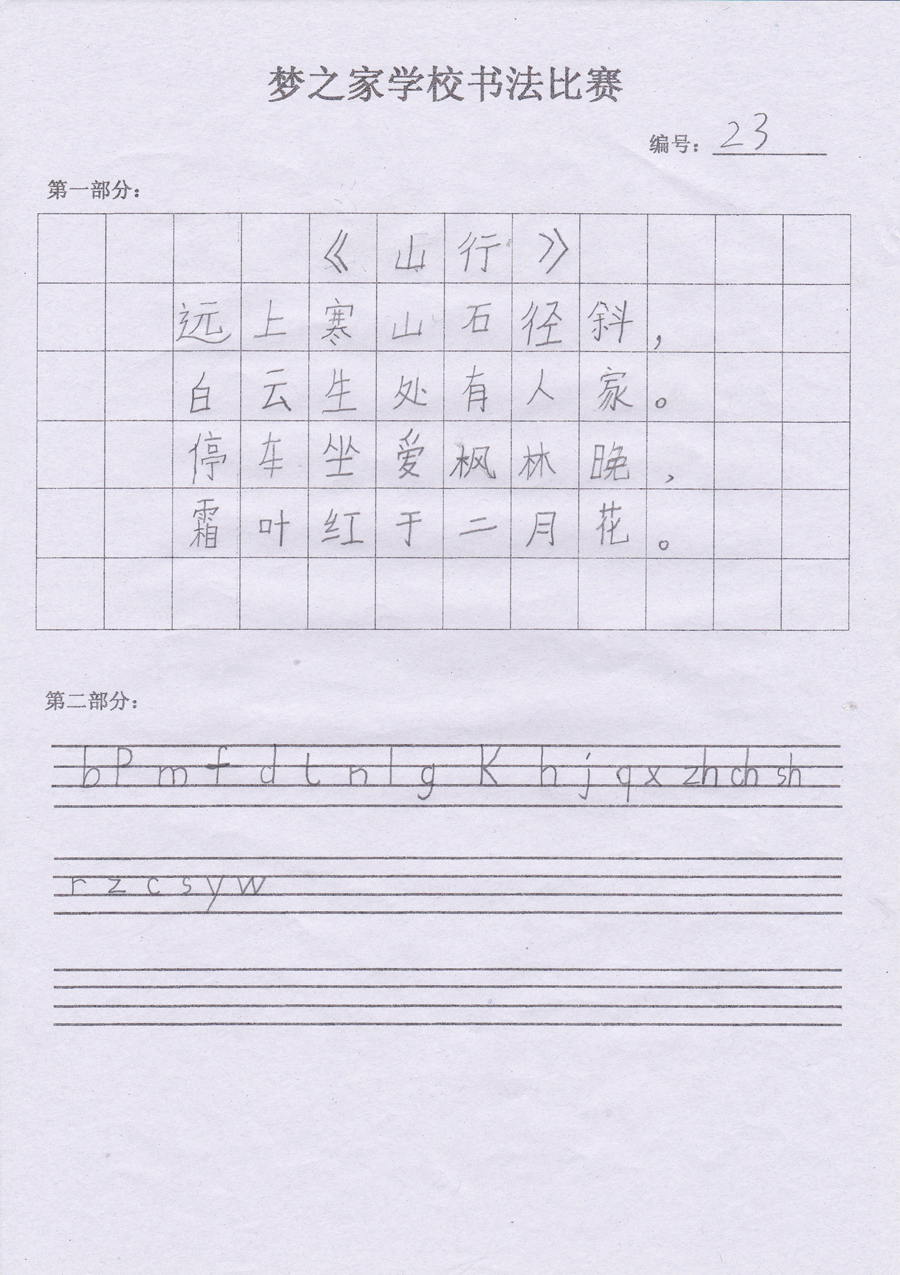 梦之家学校书法比赛
编号：23
第一部分：
《山行》
远上寒山石径斜，
白云生处有人家。
停车坐爱枫林晚，
霜叶红于二月花。
第二部分：
b p m f d t n l g k h j q x zh ch sh
r z c s y w